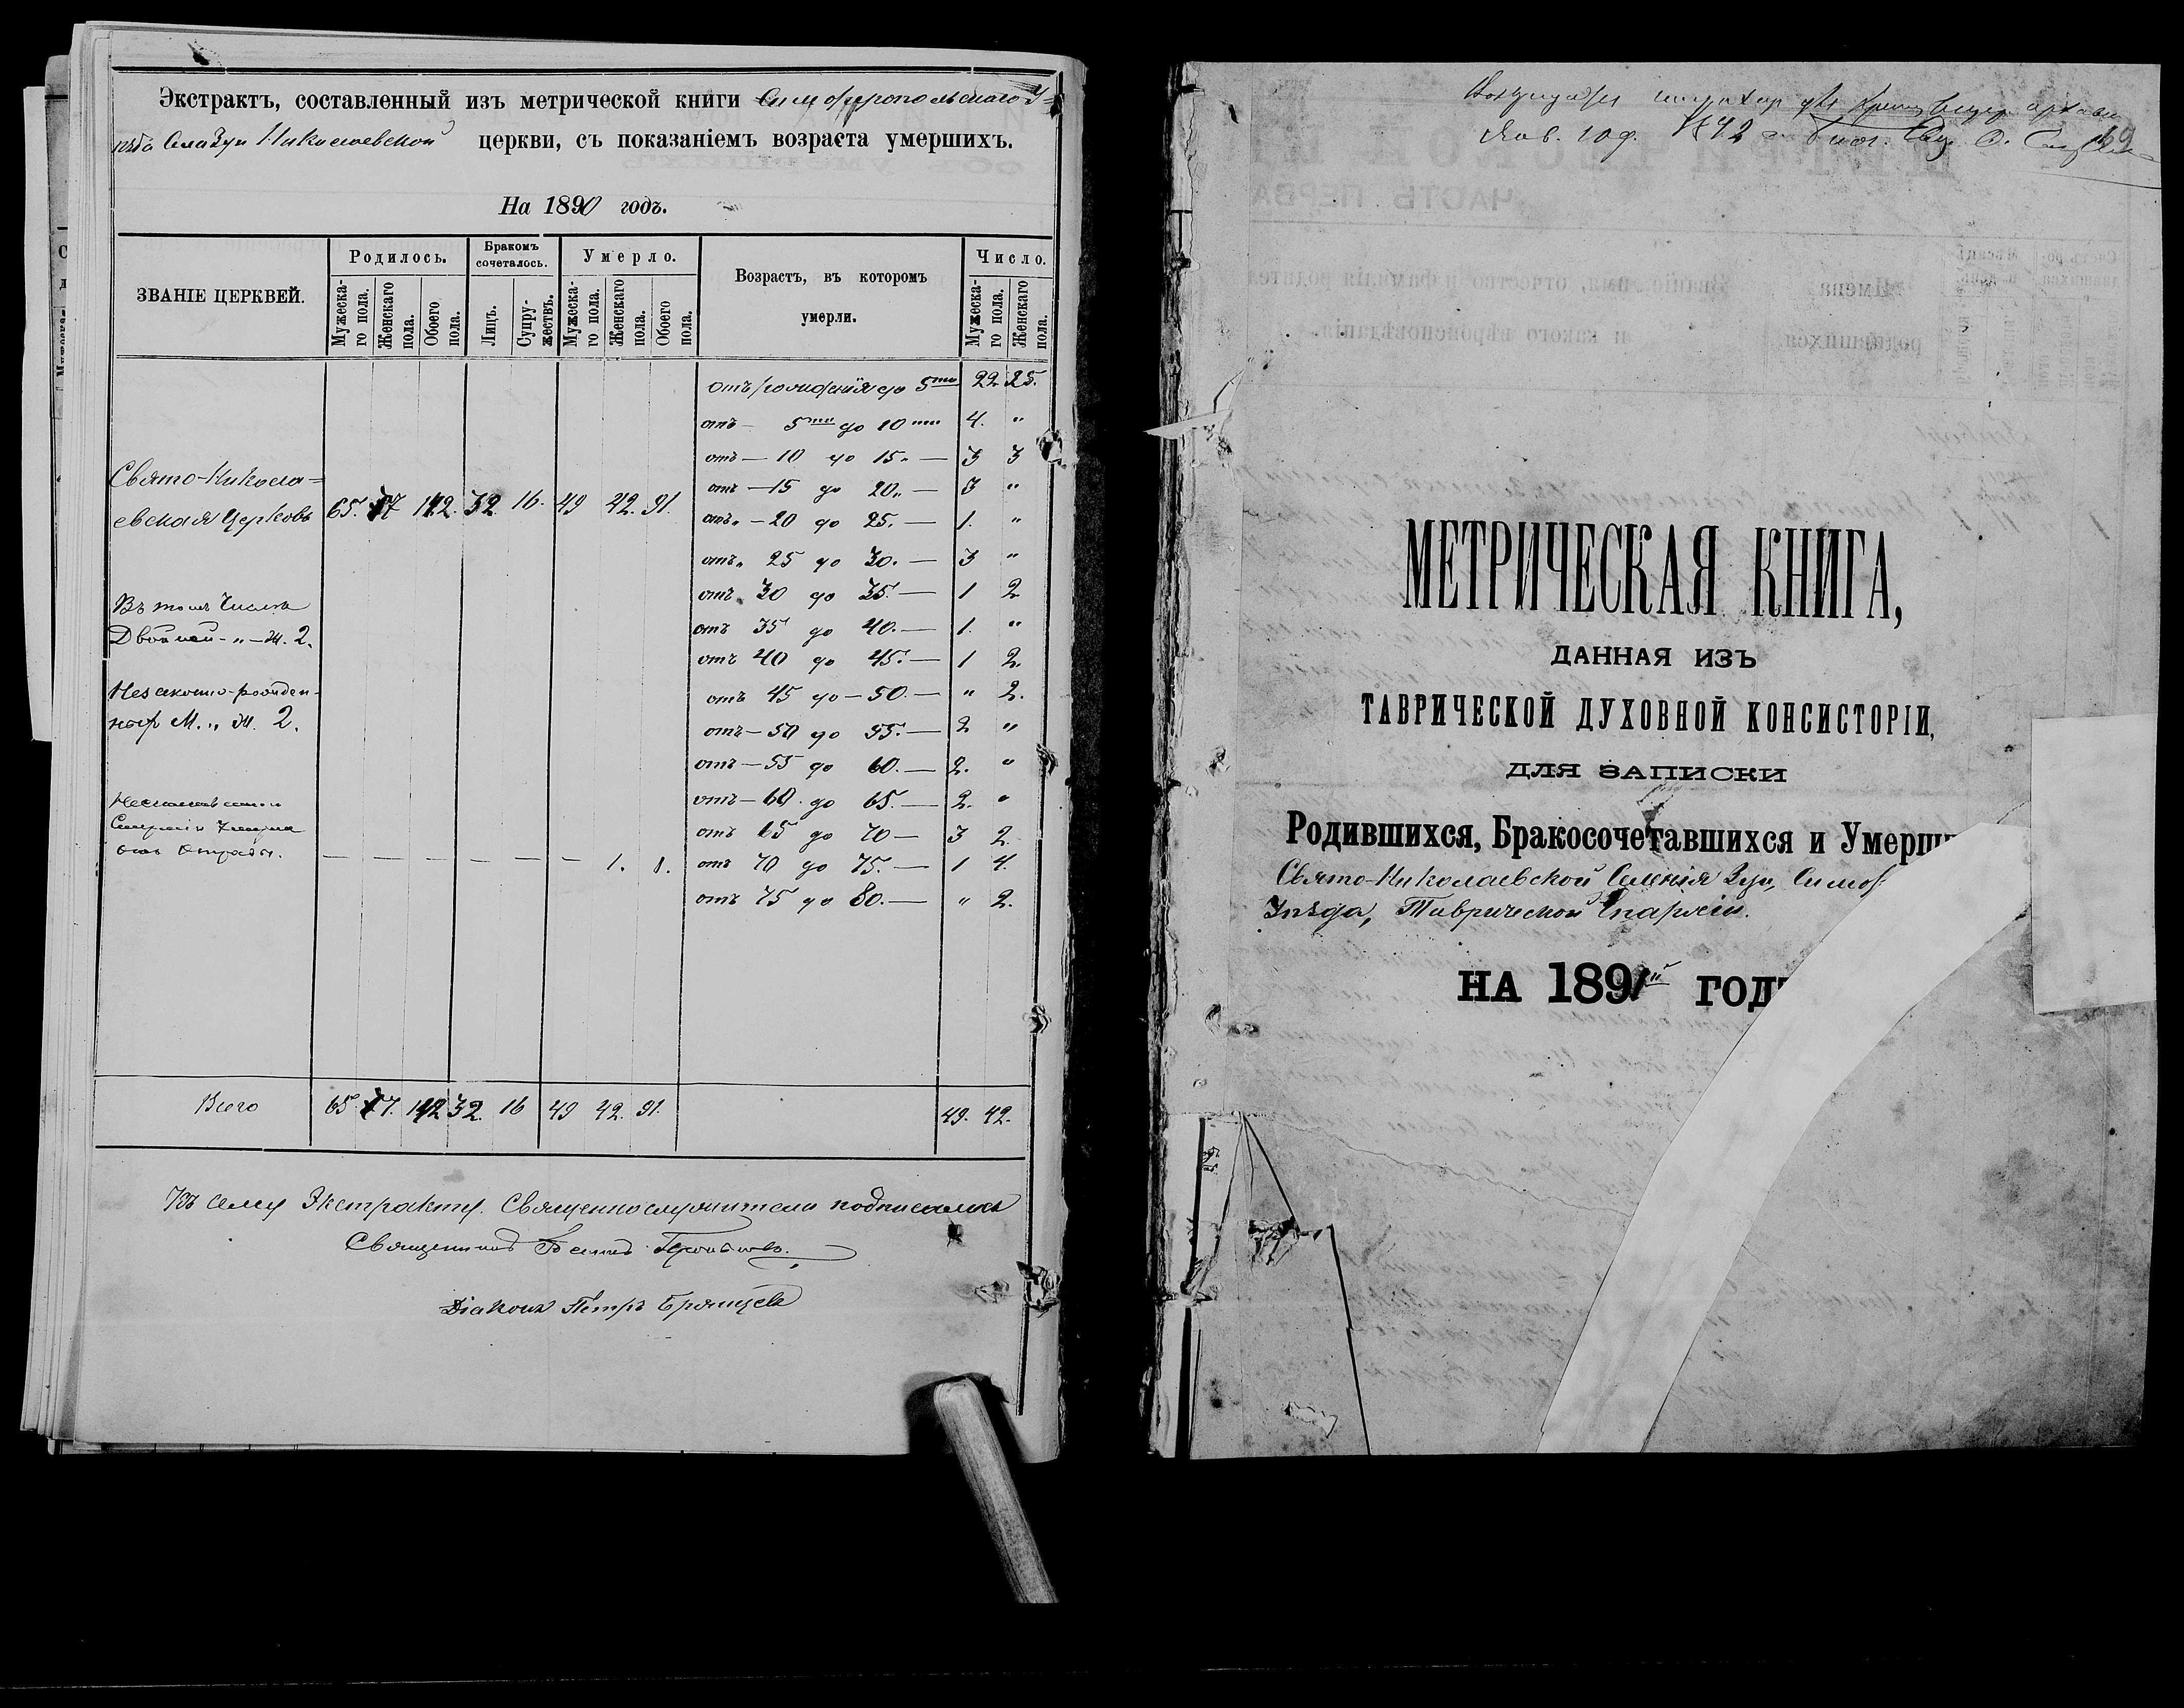 Экстрактъ, составленный изъ метрической книги Симферопольскаго У-
ѣзда Села Зуи Николаевской церкви, съ показаніемъ возраста умершихъ.
На 1890 годъ.
ЗВАНІЕ ЦЕРКВЕЙ.
Родилось.
Бракомъ сочеталось.
Умерло.
Возрастъ, въ которомъ умерли.
Число.
Мужеска-го пола.
Женскаго пола.
Обоего пола.
Лицъ.
Супру-жествъ.
Мужеска-го пола.
Женскаго пола.
Обоего пола.
Мужеска-го пола.
Женскаго пола.
отъ рожденія до 5ти 22. 25.
отъ — 5ти до 10ти 4. "
отъ — 10 до 15. — 3 3
отъ — 15 до 20. — 3 "
отъ — 20 до 25. — 1. "
отъ 25 до 30. — 3 "
отъ 30 до 35. — 1 2
отъ 35 до 40. — 1. "
отъ 40 до 45. — 1 2.
отъ 45 до — 50. — " 2.
отъ — 50 до 55. — 2 "
отъ — 55 до 60. — 2. "
отъ — 60 до 65. — 2. "
отъ 65 до 70 — 3 2.
отъ 70 до 75. — 1 4.
отъ 75 до 80. — " 2.
Свято-Никола=
евская Церковь 65. 77 142. 32. 16. 49 42. 91.
Въ томъ числѣ
Двойней - " — Ж. 2.
Незаконно-рожден-
ныхъ М. " Ж. 2.
— — — — — — 1. 1.
Всего 65. 77. 142 32. 16 49 42. 91. 49. 42.
Къ сему Экстракту Священнослужители подписались
Священникъ
Діаконъ Петръ Брянцевъ
69
МЕТРИЧЕСКАЯ КНИГА,
ДАННАЯ ИЗЪ
ТАВРИЧЕСКОЙ ДУХОВНОЙ КОНСИСТОРІИ,
ДЛЯ ЗАПИСКИ
Родившихся, Бракосочетавшихся и Умерш
Свято-Николаевской Селенія Зуи, Симоф
Уѣзда, Таврической Епархіи.
НА 1891й ГОДЪ